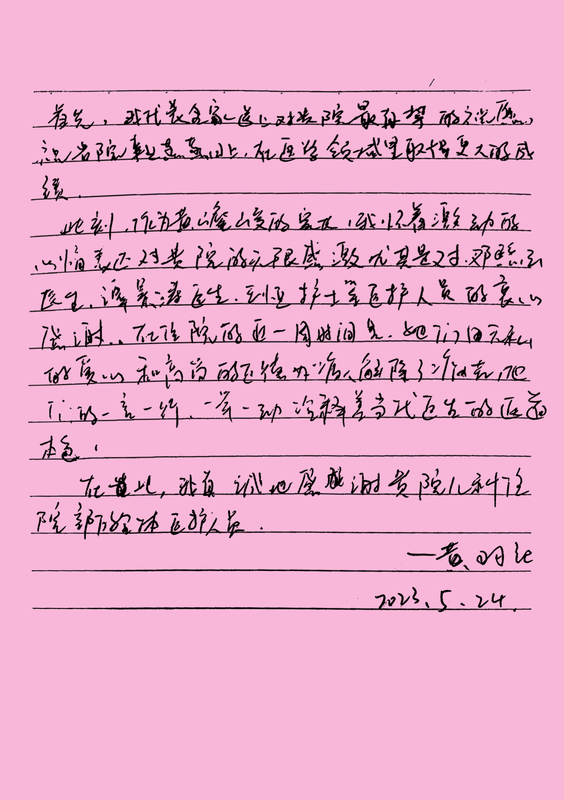 首先,我代表全家送上对贵院最真挚的祝愿,
祝贵院事业蒸蒸日上,在医学领域里取得更大的成
绩。
此刻,作为黄的家长,我怀着激动的
心情表达对贵院的无限感激尤其是对邓
医生、谭医生、到护士等医护人员的衷心
感谢。在住院的近一周时间里,她们用无私
的爱心和高尚的医德为病人解除了病,他
们的一言一行、一举一动诠释着当代医生的医者
本色。
在此,我真诚地感谢贵院儿科住
院部的全体医护人员。
—黄明
2023.5.24.